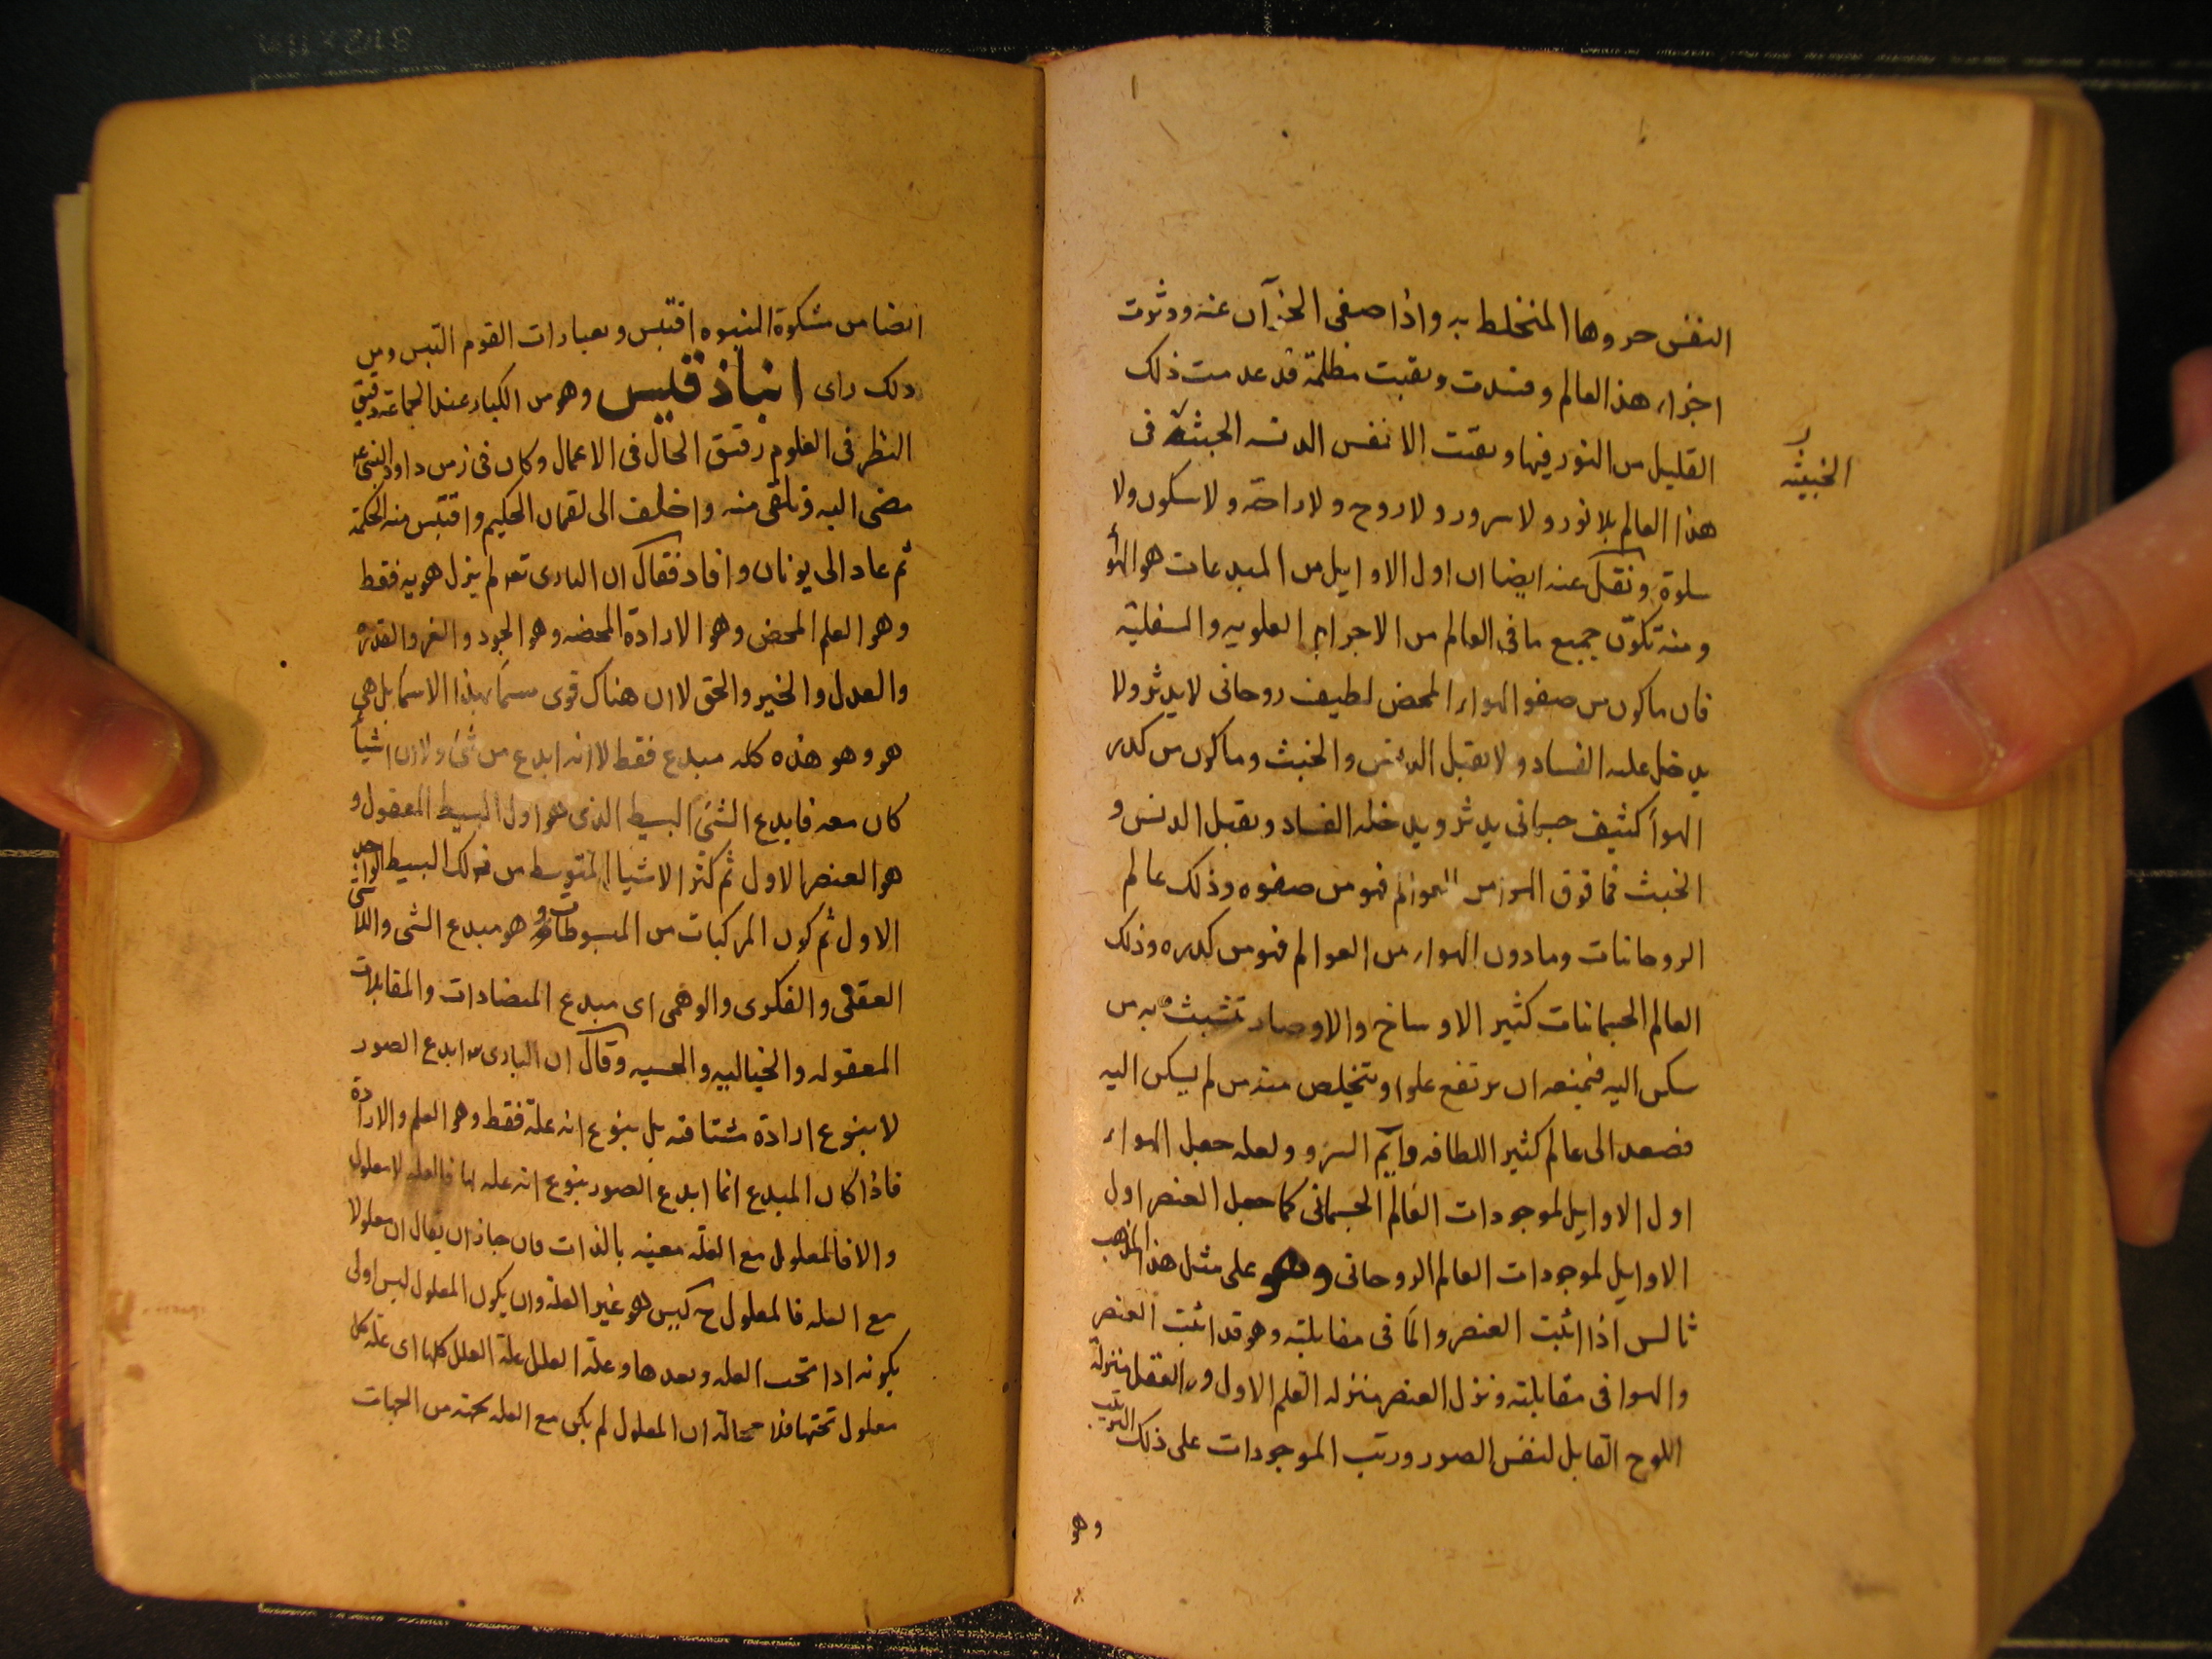 النفس جزوها المنخلط به واذا صفى الجزآن عنه ودثرت
اجزاء هذا العالم وفسدت وبقيت مظلمة قد عدمت ذلك
القليل من النور فيها وبقيت الانفس الدنسه الخبثة فى
الخبيثه
هذا العالم بلا نور ولا سرور ولا روح ولا راحة ولا سكون ولا
سلوة ونقل عنه ايضا ان اول الاوايل من المبدعات هو الهوا
ومنه تكوّن جميع ما فى العالم من الاجرام العلويه والسفلية
فان ما كون من صفو الهواء المحض لطيف روحانى لا يدثر ولا
يدخل عليه الفساد ولا يقبل الدنس والخبث وما كون من كدر
الهوا كثيف جسمانى يدثر ويدخله الفساد ويقبل الدنس و
الخبث فما فوق الهوا من العوالم فهو من صفوه وذلك عالم
الروحانيات وما دون الهواء من العوالم فهو من كدره وذلك
العالم الجسمانيات كثير الاوساخ والاوضار تشبث به من
سكن اليه فيمنعه ان يرتفع علوا ويتخلص منه من لم يسكن اليه
فصعد الى عالم كثير اللطافه دآيم السرور ولعله جعل الهواء
اول الاوايل لموجودات العالم الجسمانى كما جعل العنصر اول
الاوايل لموجودات العالم الروحانى وهو على مثل هذا المذهب
ثالس اذا اثبت العنصر والما فى مقابلته وهو قد اثبت العنصر
والهوا فى مقابلته ونزل العنصر منزله القلم الاول والعقل منزلة
اللوح القابل لنقش الصور ورتب الموجودات على ذلك الترتيب
وهو
ايضا من مشكوة النبوه اقتبس وبعبارات القوم التبس ومن
ذلك راى انباذقليس وهو من الكبار عند الجماعة دقيق
النظر فى العلوم رقيق الحال فى الاعمال وكان فى زمن داود النبى
مضى اليه وتلقى منه واختلف الى لقمان الحكيم واقتبس منه الحكمة
ثم عاد الى يونان وافاد فقال ان البارى تعه لم يزل هويه فقط
وهو العلم المحض وهو الارادة المحضه وهو الجود والعز والقدره
والعدل والخير والحق لا ان هناك قوى مسماة بهذا الاسما بل هى
هو وهو هذه كله مبدع فقط لا انه ابدع من شئ ولا ان شيأ
كان معه فابدع الشئ البسيط الذى هو اول البسيط المعقول و
هو العنصر الاول ثم كثر الاشيا المتوسط من ذلك البسيط الواحد
الاول ثم كون المركبات من المبسوطات وهو مبدع الشى واللاشى
العقلى والفكرى والوهمى اى مبدع المتضادات والمقابلات
المعقوله والخياليه والحسيه وقال ان البارى ابدع الصور
لا بنوع ارادة مستانفه بل بنوع انه علة فقط وهو العلم والارادة
فاذا كان المبدع انما ابدع الصور بنوع انه عله لها فالعله لا معلول
والا فالمعلول مع العلّه معيه بالذات فان جاز ان يقال ان معلولا
مع العله فالمعلول ح ليس هو غير العلة وان يكون المعلول ليس اولى
بكونه اذا تحت العله وبعدها وعلة العلل علة العلل كلها اى علة كل
معلول تحتها فلا محالة ان المعلول لم يكن مع العله بجهة من الجهات